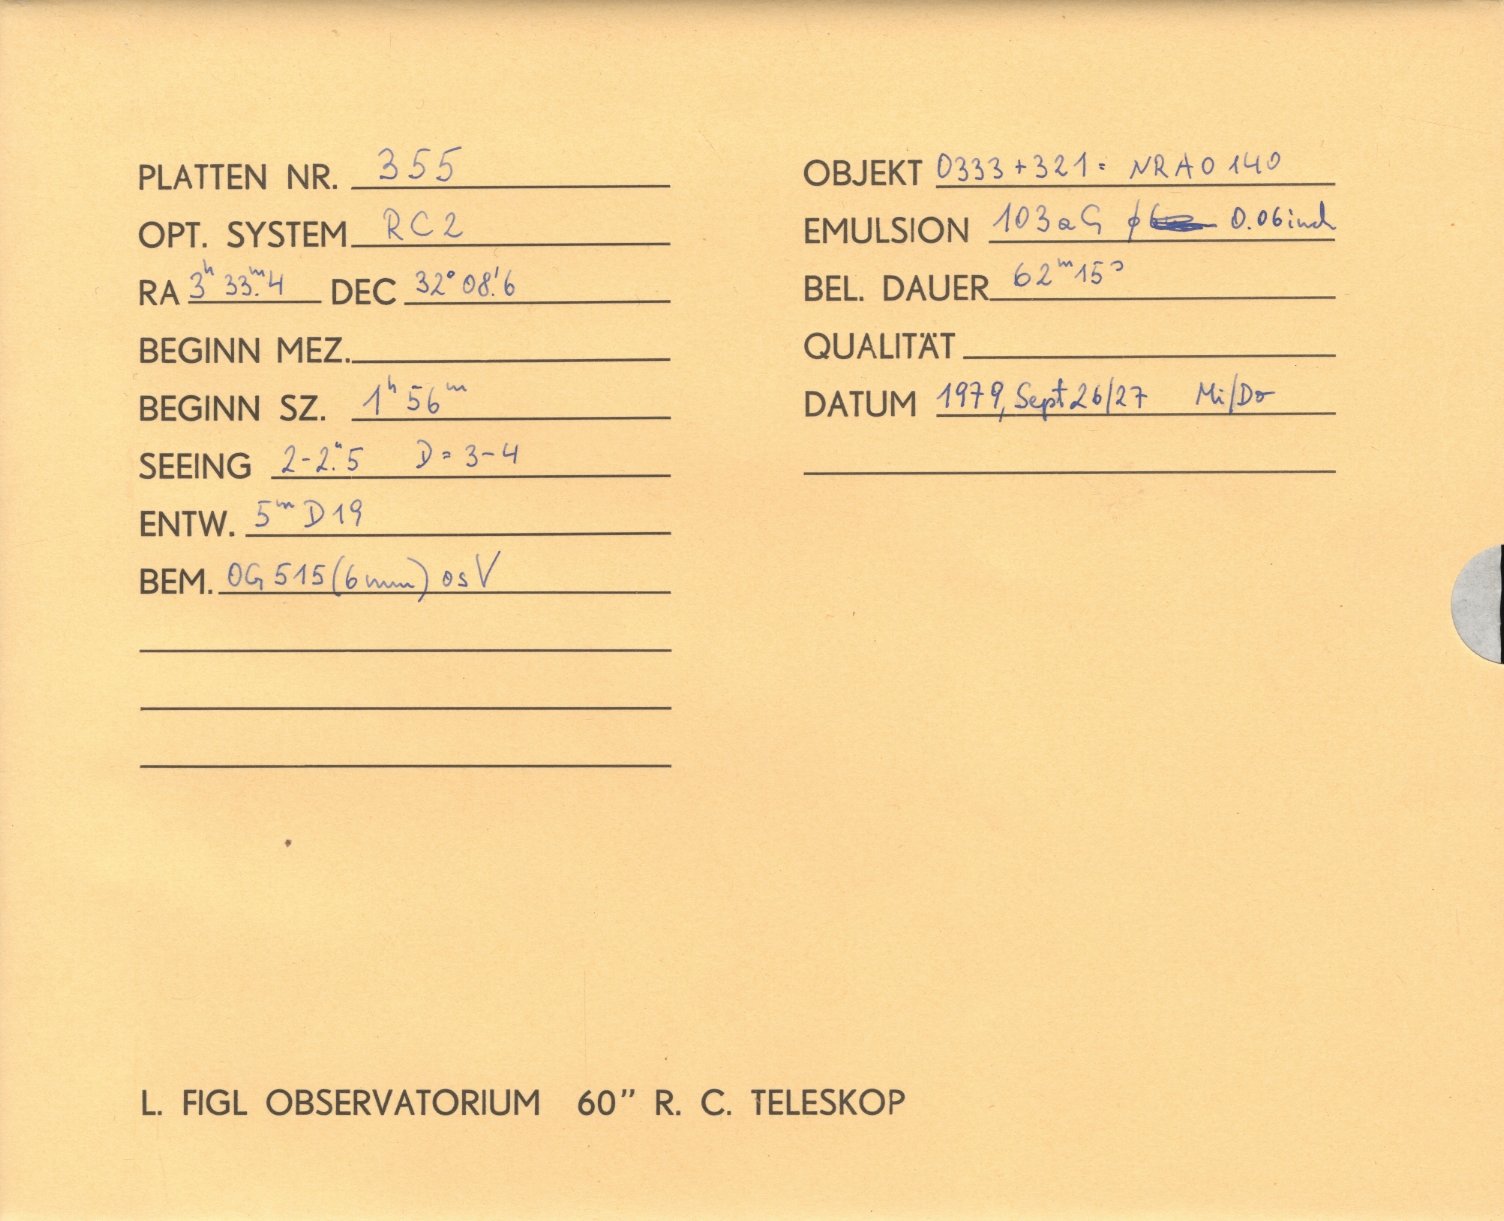 PLATTEN NR. 355
OPT. SYSTEM RC2
RA 3ʰ 33ᵐ.4 DEC 32° 08'.6
BEGINN MEZ.
BEGINN SZ. 1ʰ 56ᵐ
SEEING 2-2".5 D = 3-4
ENTW. 5ᵐ D19
BEM. OG 515 (6mm) os V
OBJEKT 0333+321 = NRAO 140
EMULSION 103aG ϕ 0.06inch
BEL. DAUER 62ᵐ15ˢ
QUALITÄT
DATUM 1979, Sept 26/27 Mi/Do
L. FIGL OBSERVATORIUM 60" R. C. TELESKOP